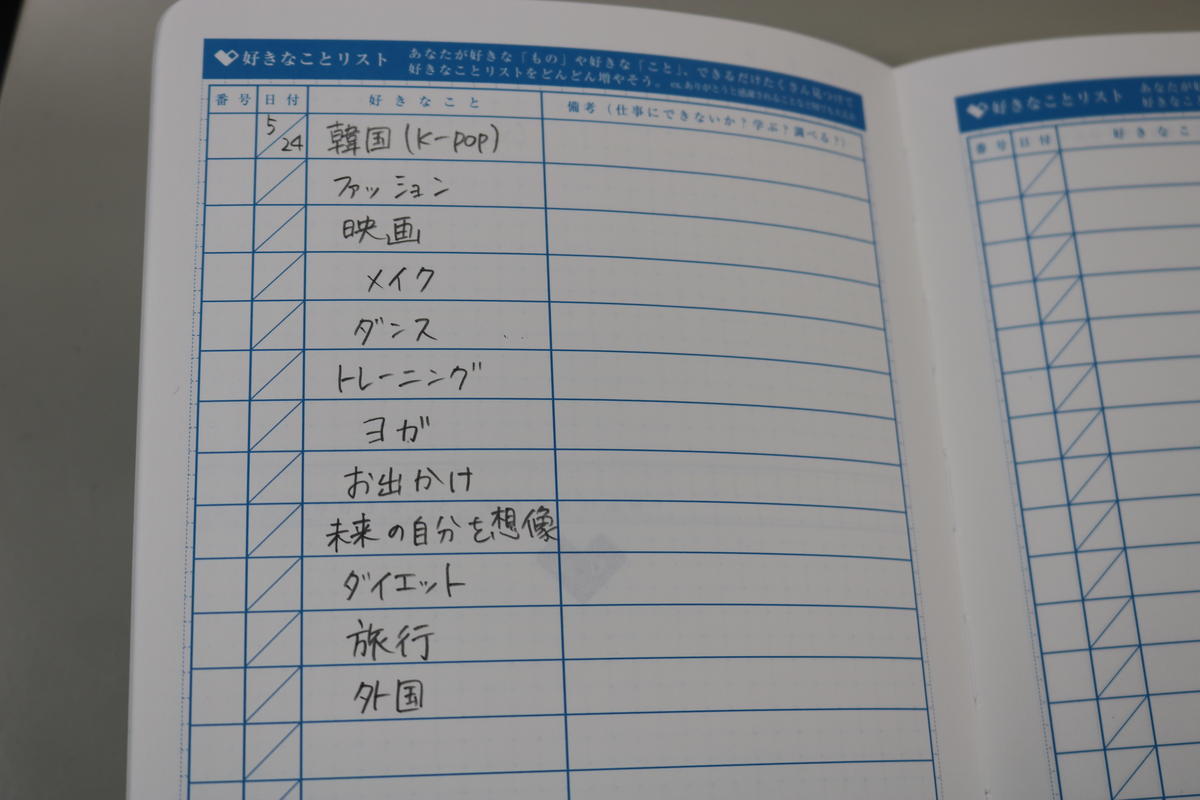 好きなことリスト
あなたが好きな「もの」や好きな「こと」、できるだけたくさん見つけて
好きなことリストをどんどん増やそう。
番号 日付 好きなこと 備考(仕事にできないか?学ぶ?調べる?)
5/24 韓国(K-pop)
ファッション
映画
メイク
ダンス
トレーニング
ヨガ
お出かけ
未来の自分を想像
ダイエット
旅行
外国
好きなことリスト
あなたが
好きなこ
番号 日付 好きなこ